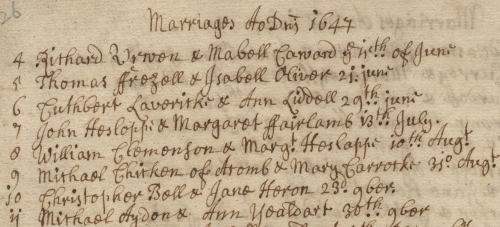 26
Marriages Ao Dni 1647
4 Richard Urwen & Mabell Caward ye 15th of June
5 Thomas ffrezell & Isabell Oliver 21. june
6 Cuthbert Laveritke & Ann Liddell 29th june
7 John Heslappe & Margaret ffairlamb 13th July.
8 William Clemenson & Margt. Heslappe 10th Augt
9 Michael Chicken of Acomb & Mary Carrocke 31o Augt
10 Christopher Bell & Jane Heron 23o 9ber
11 Michael Aydon & Ann Yealdart 30th 9ber